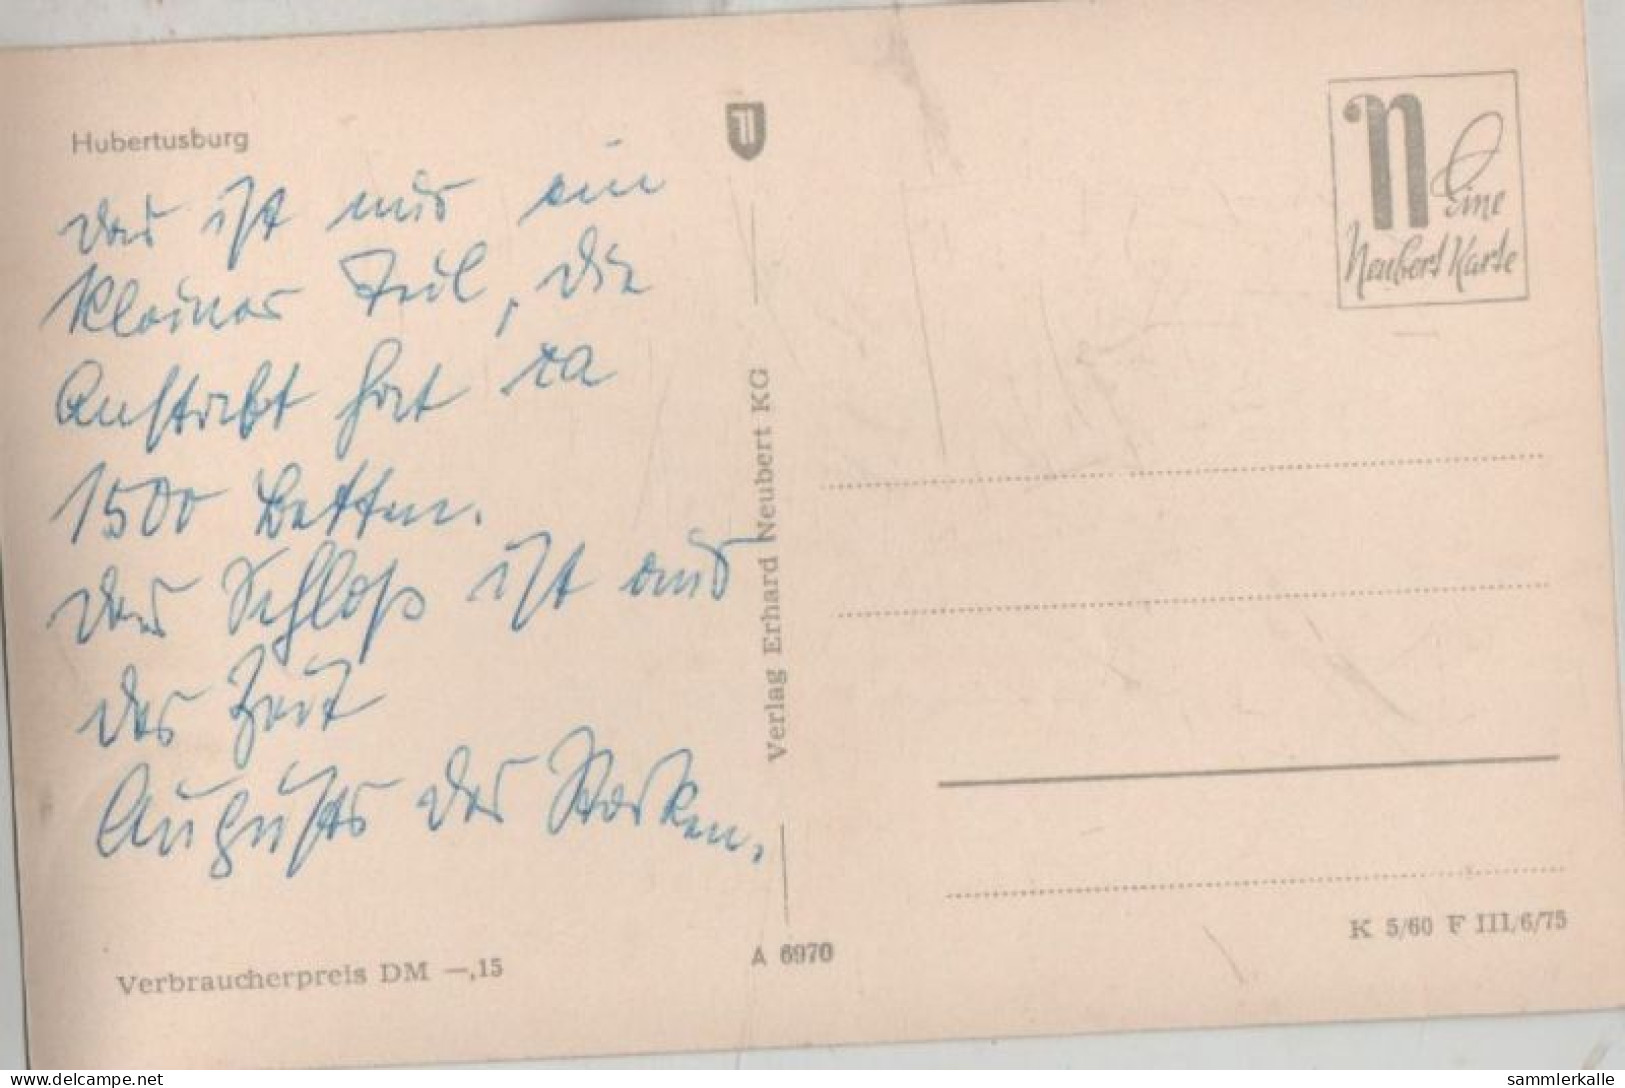 Hubertusburg
Das ist nur ein
kleiner Teil, die
Anstalt hat ca
1500 Betten.
Das Schloß ist aus
der Zeit
Augusts der Starken.
Verbraucherpreis DM —,15
Verlag Erhard Neubert KG
A 6970
N
Eine
Neubert Karte
K 5/60 F III/6/75
www.delcampe.net
sammlerkalle